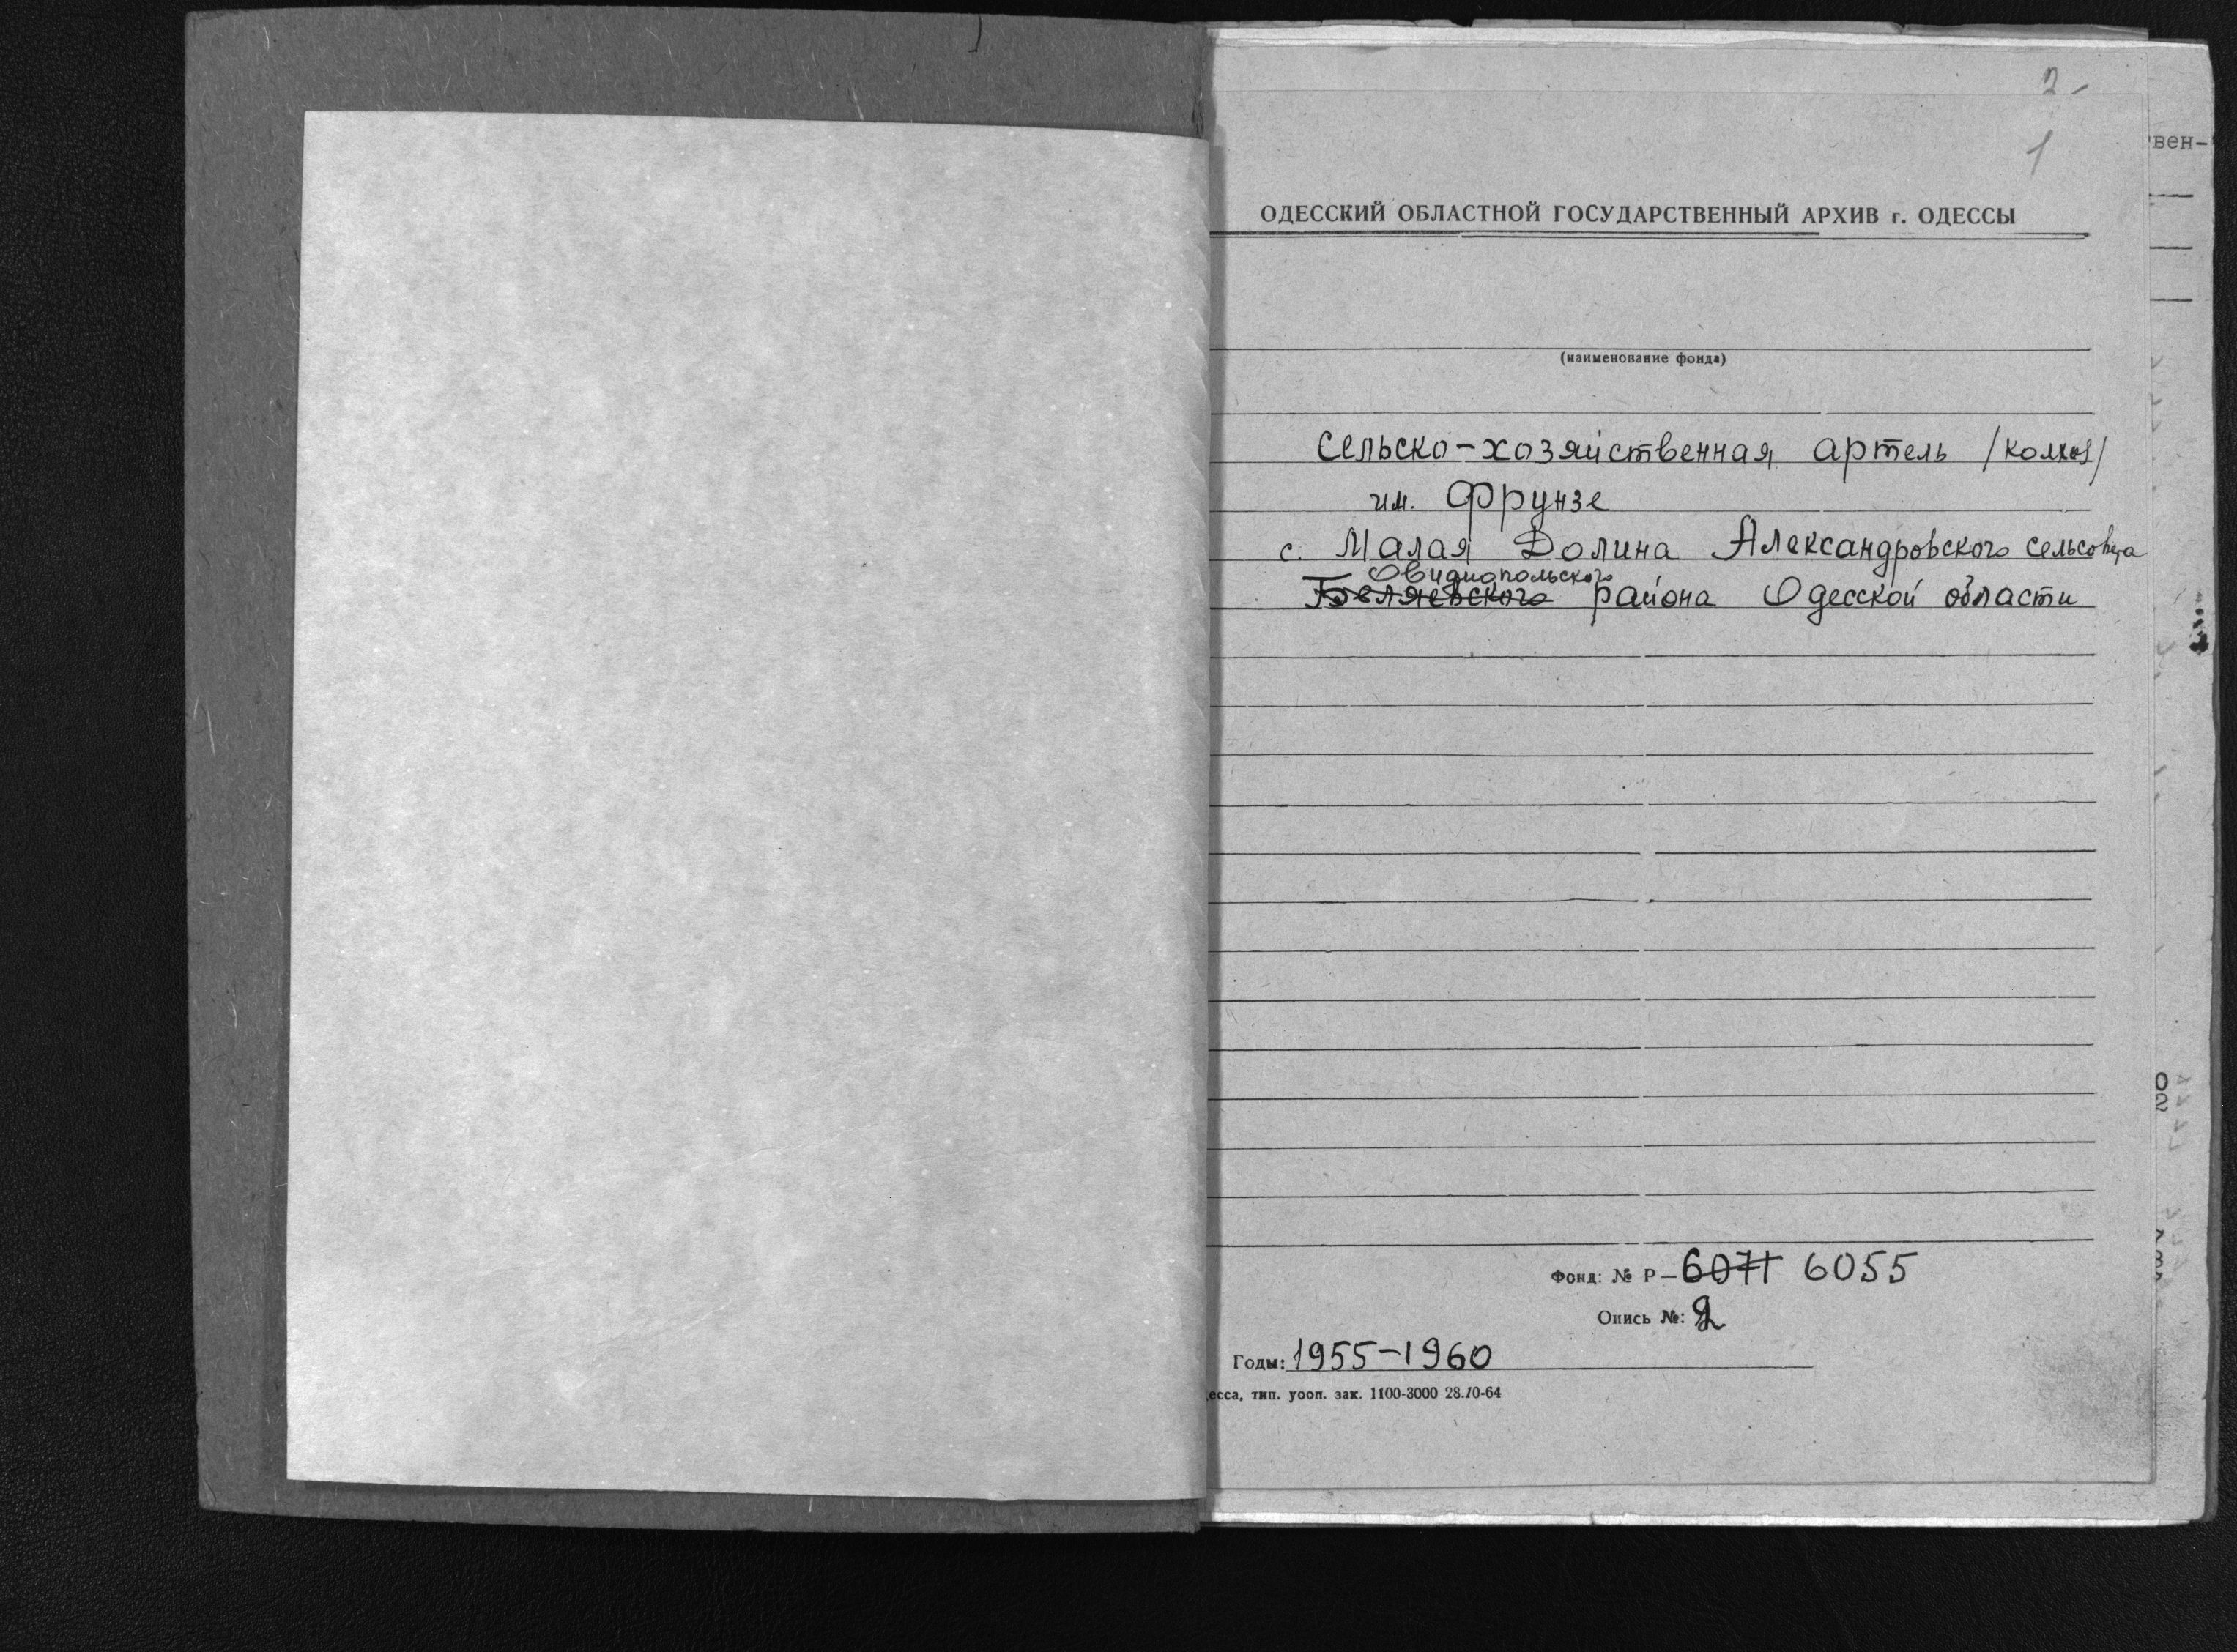 2
1
ОДЕССКИЙ ОБЛАСТНОЙ ГОСУДАРСТВЕННЫЙ АРХИВ г. ОДЕССЫ
(наименование фонда)
Сельско-хозяйственная артель /колхоз/
им. Фрунзе
с. Малая Долина Александровского сельсовета
Овидиопольского
Беляевского района Одесской области
Фонд: № Р— 6071 6055
Опись №: 2
Годы: 1955-1960
есса, тип. уооп. зак. 1100-3000 28.10-64
вен-